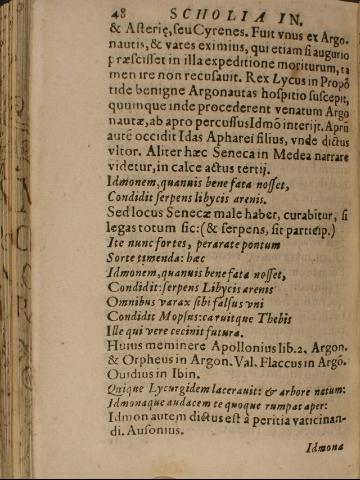 48 SCHOLIA IN.
& Asterię, seu Cyrenes. Fuit vnus ex Argo-
nautis, & vates eximius, qui etiam si augurio
præscisset in illa expeditione moriturum, ta
men ire non recusauit. Rex Lycus in Propō
tide benigne Argonautas hospitio suscepit,
quumque inde procederent venatum Argo
nautæ, ab apro percussus Idmō interijt. Aprū
autē occidit Idas Apharei filius, vnde dictus
vltor. Aliter hæc Seneca in Medea narrare
videtur, in calce actus tertij.
Idmonem, quanuis bene fata nosset,
Condidit serpens libycis arenis.
Sed locus Senecæ male habet, curabitur, si
legas totum sic: (& serpens, sit particip.)
Ite nunc fortes, perarate pontum
Sorte timenda: hæc
Idmonem, quanuis bene fata nosset,
Condidit: serpens Libycis arenis
Omnibus varax sibi falsus vni
Condidit Mopsus: caruitque Thebis
Ille qui vere cecinit futura.
Huius meminere Apollonius lib. 2. Argon.
& Orpheus in Argon. Val. Flaccus in Argō.
Ouidius in Ibin.
Quique Lycurgidem lacerauit: & arbore natum:
Idmonaque audacem te quoque rumpat aper:
Idmon autem dictus est à peritia vaticinan-
di. Ausonius.
Idmona